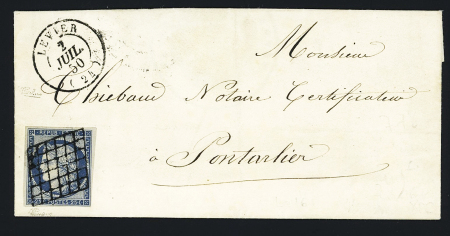 LEVIER
2
JUIL.
50
(24)
Monsieur
Thiebaud Notaire Certificateur
à Pontarlier
REPUB
POSTES